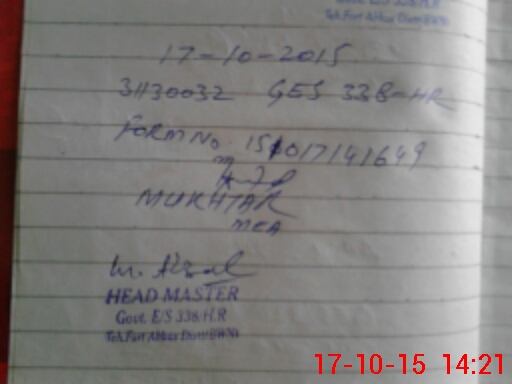 Govt. E/S 338/H.R
Teh.Fort Abbas Distt(BWN)
17-10-2015
31130032 GES 338-HR
FORM No. 151017141649
MUKHTAR
MEA
HEAD MASTER
Govt. E/S 338/H.R
Teh.Fort Abbas Distt(BWN)
17-10-15 14:21